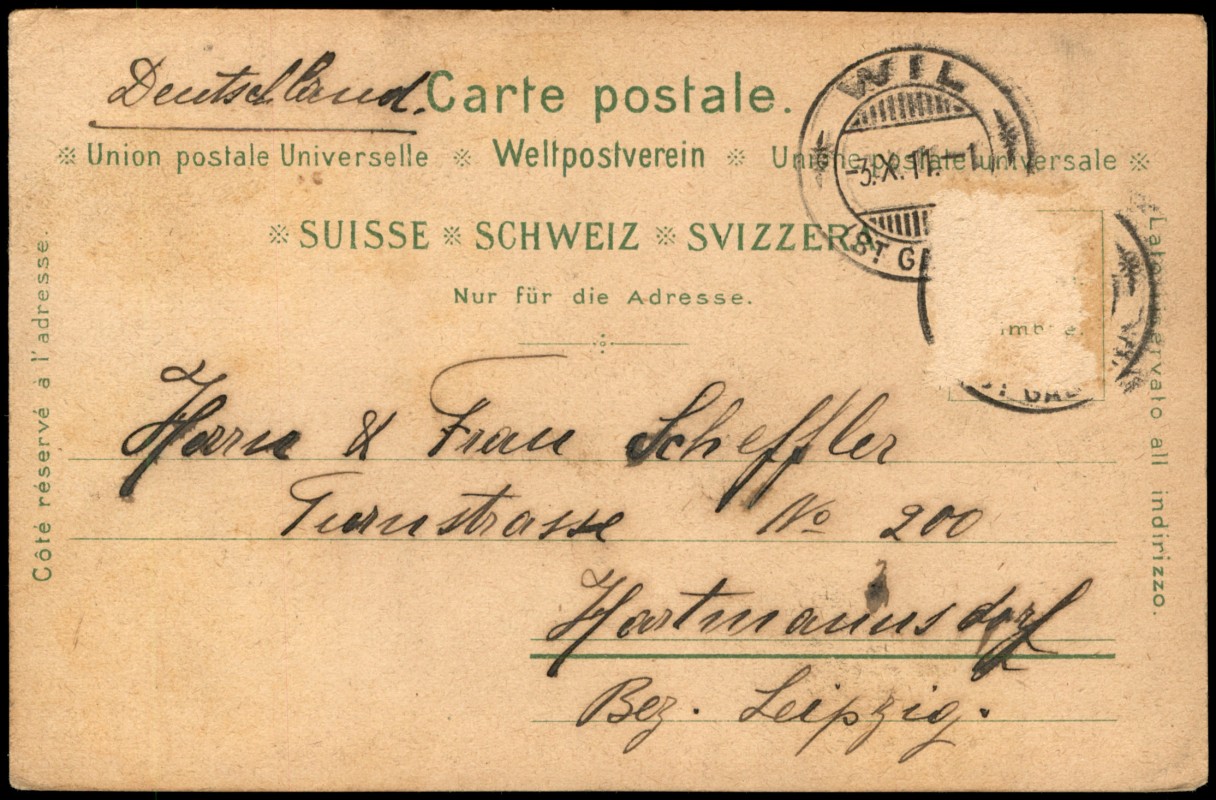 Deutschland.
Carte postale.
※ Union postale Universelle ※ Weltpostverein ※ Unione postale universale ※
※ SUISSE ※ SCHWEIZ ※ SVIZZERA
Nur für die Adresse.
Côté réservé à l'adresse.
WIL
-3.X.11.-1
ST GA
ST GAL
Lato riservato all indirizzo.
Herrn & Frau Scheffler
Turnstrasse No 200
Hartmannsdorf
Bez. Leipzig.